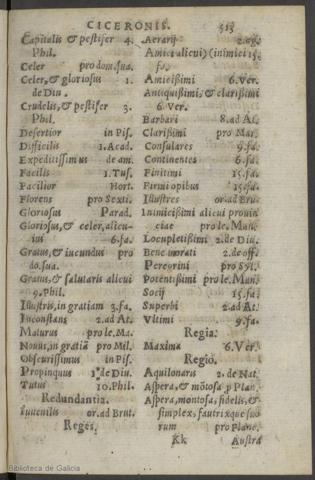 CICERONIS. 513
Capitalis & pestifer 4.
Phil.
Celer pro dom. sua.
Celer, & gloriosus 1.
de Diu.
Crudelis, & pestifer 3.
Phil.
Desertior in Pis.
Difficilis 1. Acad.
Expeditissimus de am.
Facilis 1. Tus.
Facilior Hort.
Florens pro Sexti.
Gloriosus Parad.
Gloriosus, & celer, alicu-
ius 6. fa.
Gratus, & iucundus pro
do. sua.
Gratus, & salutaris alicui
9. Phil.
Illustris, in gratiam 3. fa.
Inconstans 2. ad At.
Maturus pro le. Ma.
Nouus, in gratiã pro Mil.
Obscurissimus in Pis.
Propinquus 1. de Diu.
Tutus 10. Phil.
Redundantia.
Iuuenilis or. ad Brut.
Reges.
Aerarij 2. ag.
Amici alicui) (inimici 15.
fa.
Amicissimi 6. Ver.
Antiquissimi, & clarissimi
6. Ver.
Barbari 8. ad At.
Clarissimi pro Mar.
Consulares 9. fa.
Continentes 6. fa.
Finitimi 15. fa.
Firmi opibus 15. fa.
Illustres or. ad Bru.
Inimicissimi alicui prouin
ciae pro le. Man.
Locupletissimi 2. de Diu.
Bene morati 2. de off.
Peregrini pro Syl.
Potentissimi pro le. Man.
Socij 15. fa.
Superbi 2. ad At.
Vltimi 9. fa.
Regia.
Maxima 6. Ver.
Regio.
Aquilonaris 2. de Nat.
Aspera, & mõtosa p Plan.
Aspera, montosa, fidelis, &
simplex, fautrix que suo
rum pro Planc.
Kk Austra
Biblioteca de Galicia